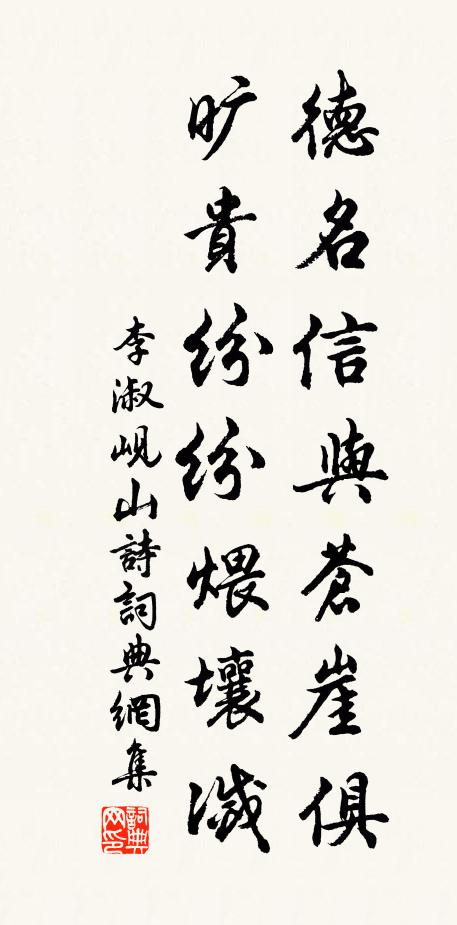 德名信與蒼崖俱
旷貴紛紛煨壤滅
李淑峴山詩詞典網集
詞典网印